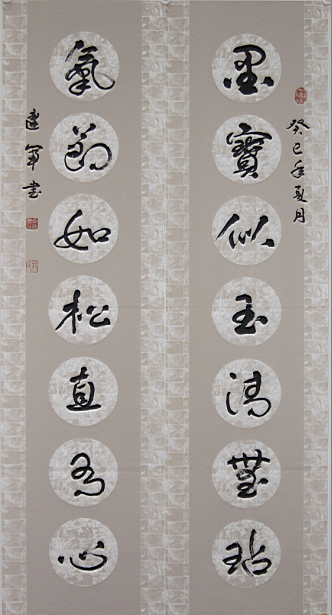 癸巳年夏月
墨寶似玉清無玷
氣節如松直心
建軍書